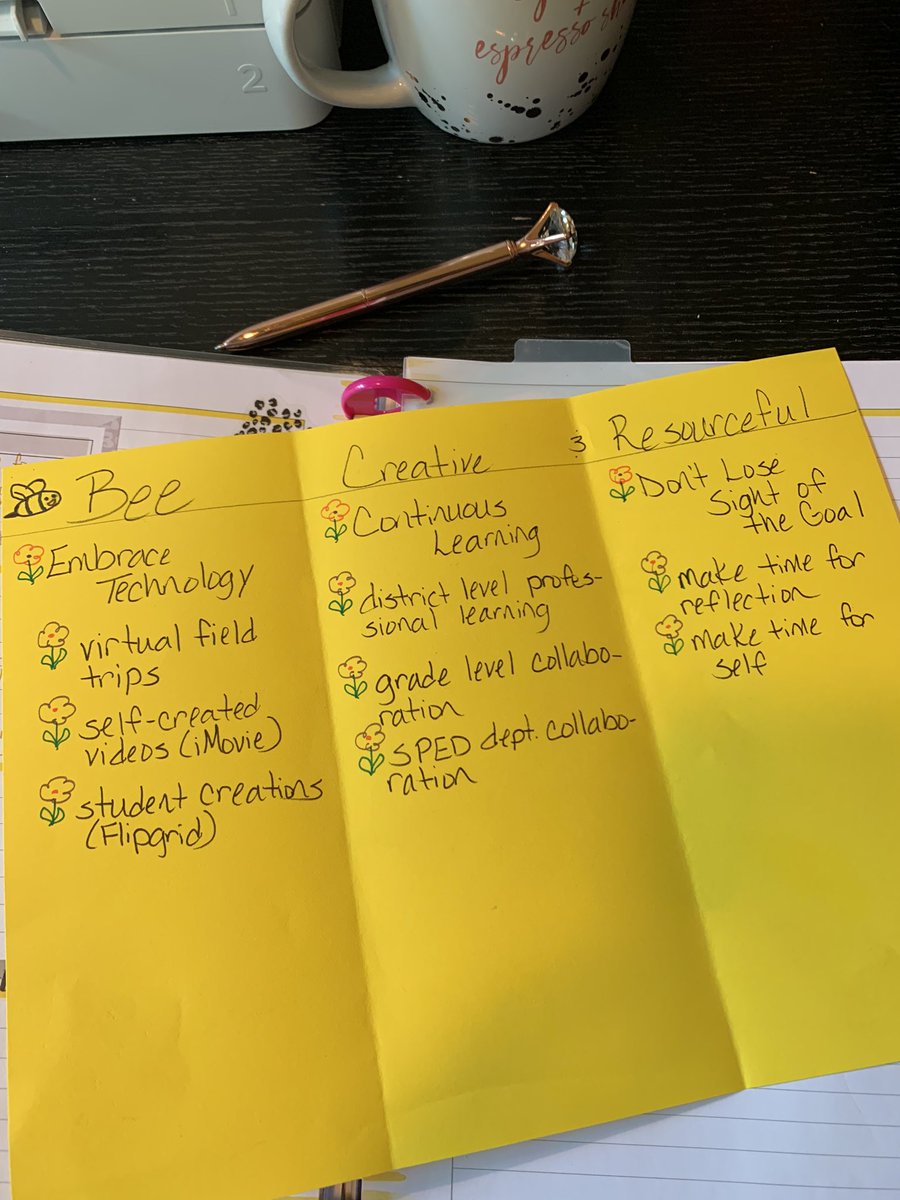 2
espresso
Bee
Embrace
Technology
virtual field
trips
self-created
videos (iMovie)
student creations
(Flipgrid)
Creative
Continuous
Learning
district level profes-
sional learning
grade level collabo-
ration
SPED dept. collabo-
ration
Resourceful
Don't Lose
Sight of
the Goal
make time for
reflection
make time for
self